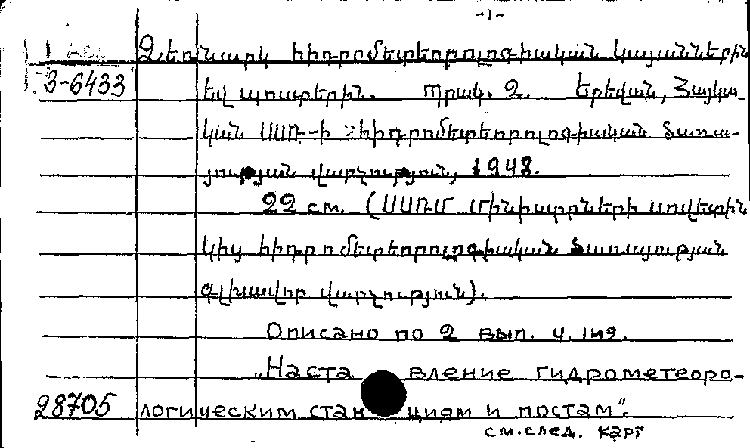 -1-
Ձեռնարկ հիդրոմետեորոլոգիական կայաններին
3-6433 եվ պոստերին. Պրակ. 2. Երեվան, Հայկա-
կան ՍՍՌ-ի հիդրոմետեորոլոգիական ծառա-
յության վարչություն, 1948.
22 см. (ՍՍՌՄ Մինիստրների սովետին
կից հիդրոմետեորոլոգիական ծառայության
գլխավոր վարչություն).
Описано по 2 вып.
„Наставление гидрометеоро-
28705 логическим станциям и постам“.
см. след. карт